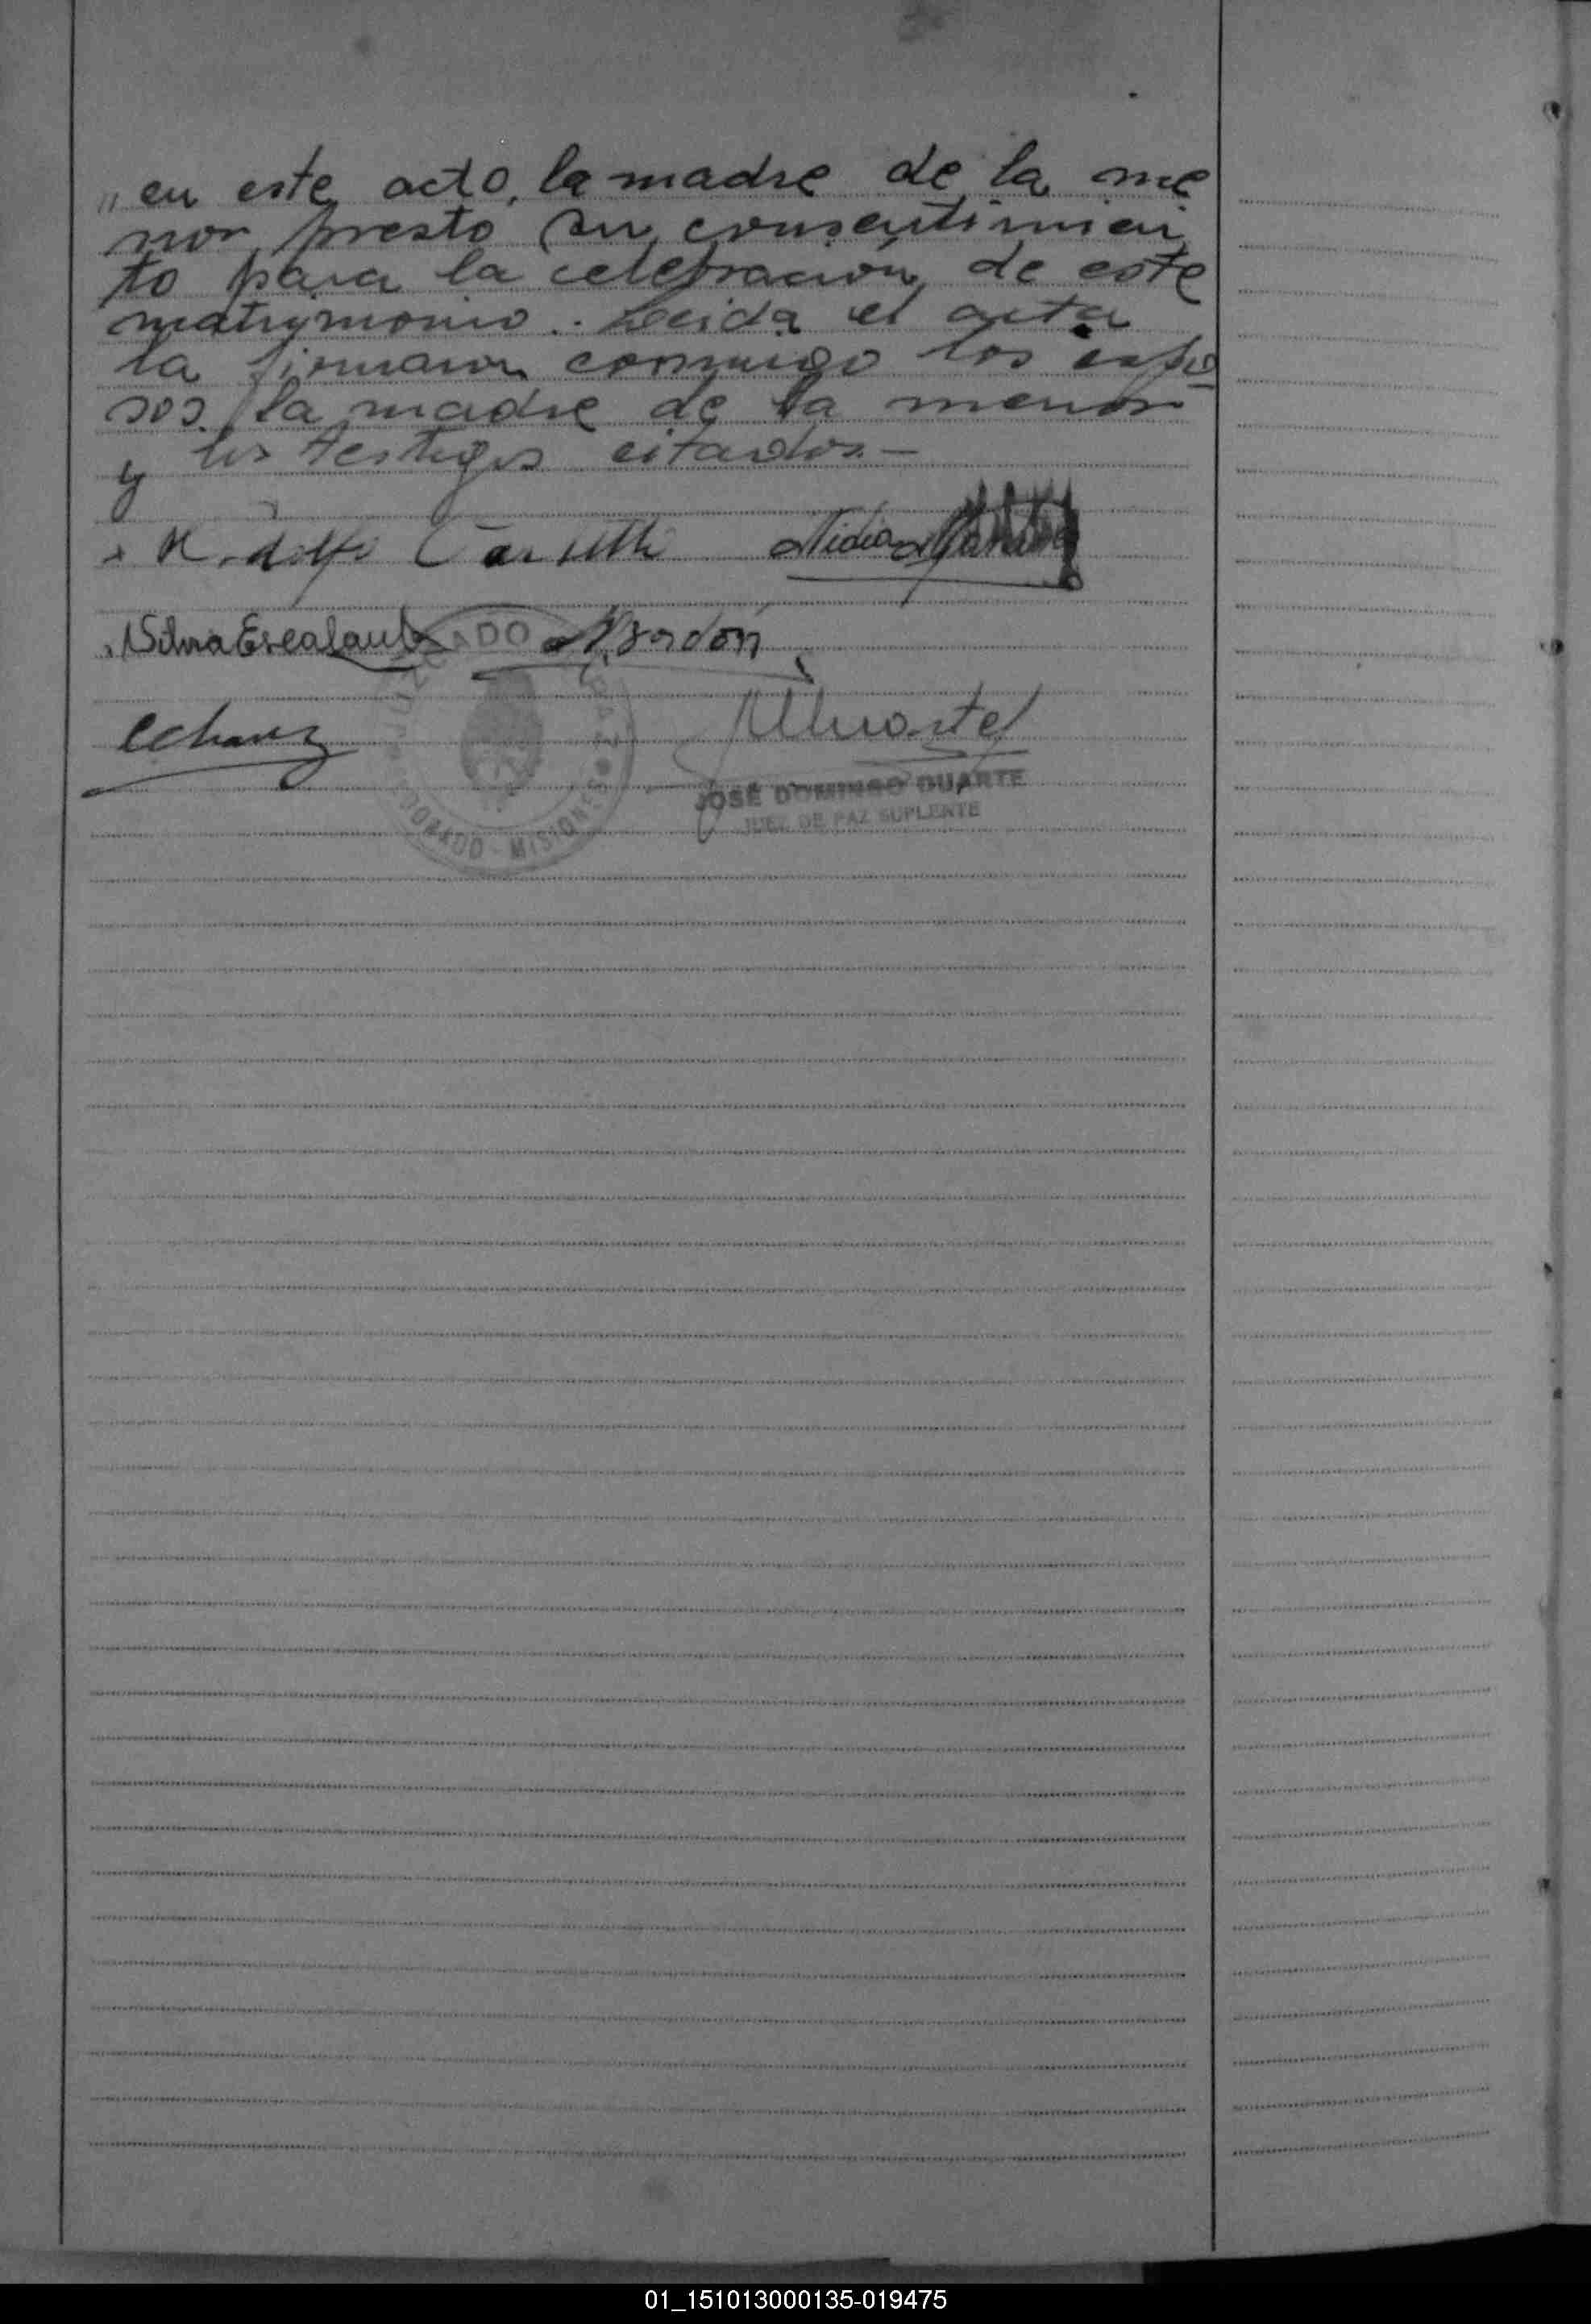 „ en este acto, la madre de la me
nor, presto su consentimien
to para la celebración de este
matrymonio.. Leida el acta
la firmaron conmigo los espo
sos, la madre de la menor
y los testigos citados.—
Nidia
Silvia Escalante N. Bordón
JUZGADO DE PAZ
ELDORADO - MISIONES
JOSÉ DOMINGO DUARTE
JUEZ DE PAZ SUPLENTE
01_151013000135-019475